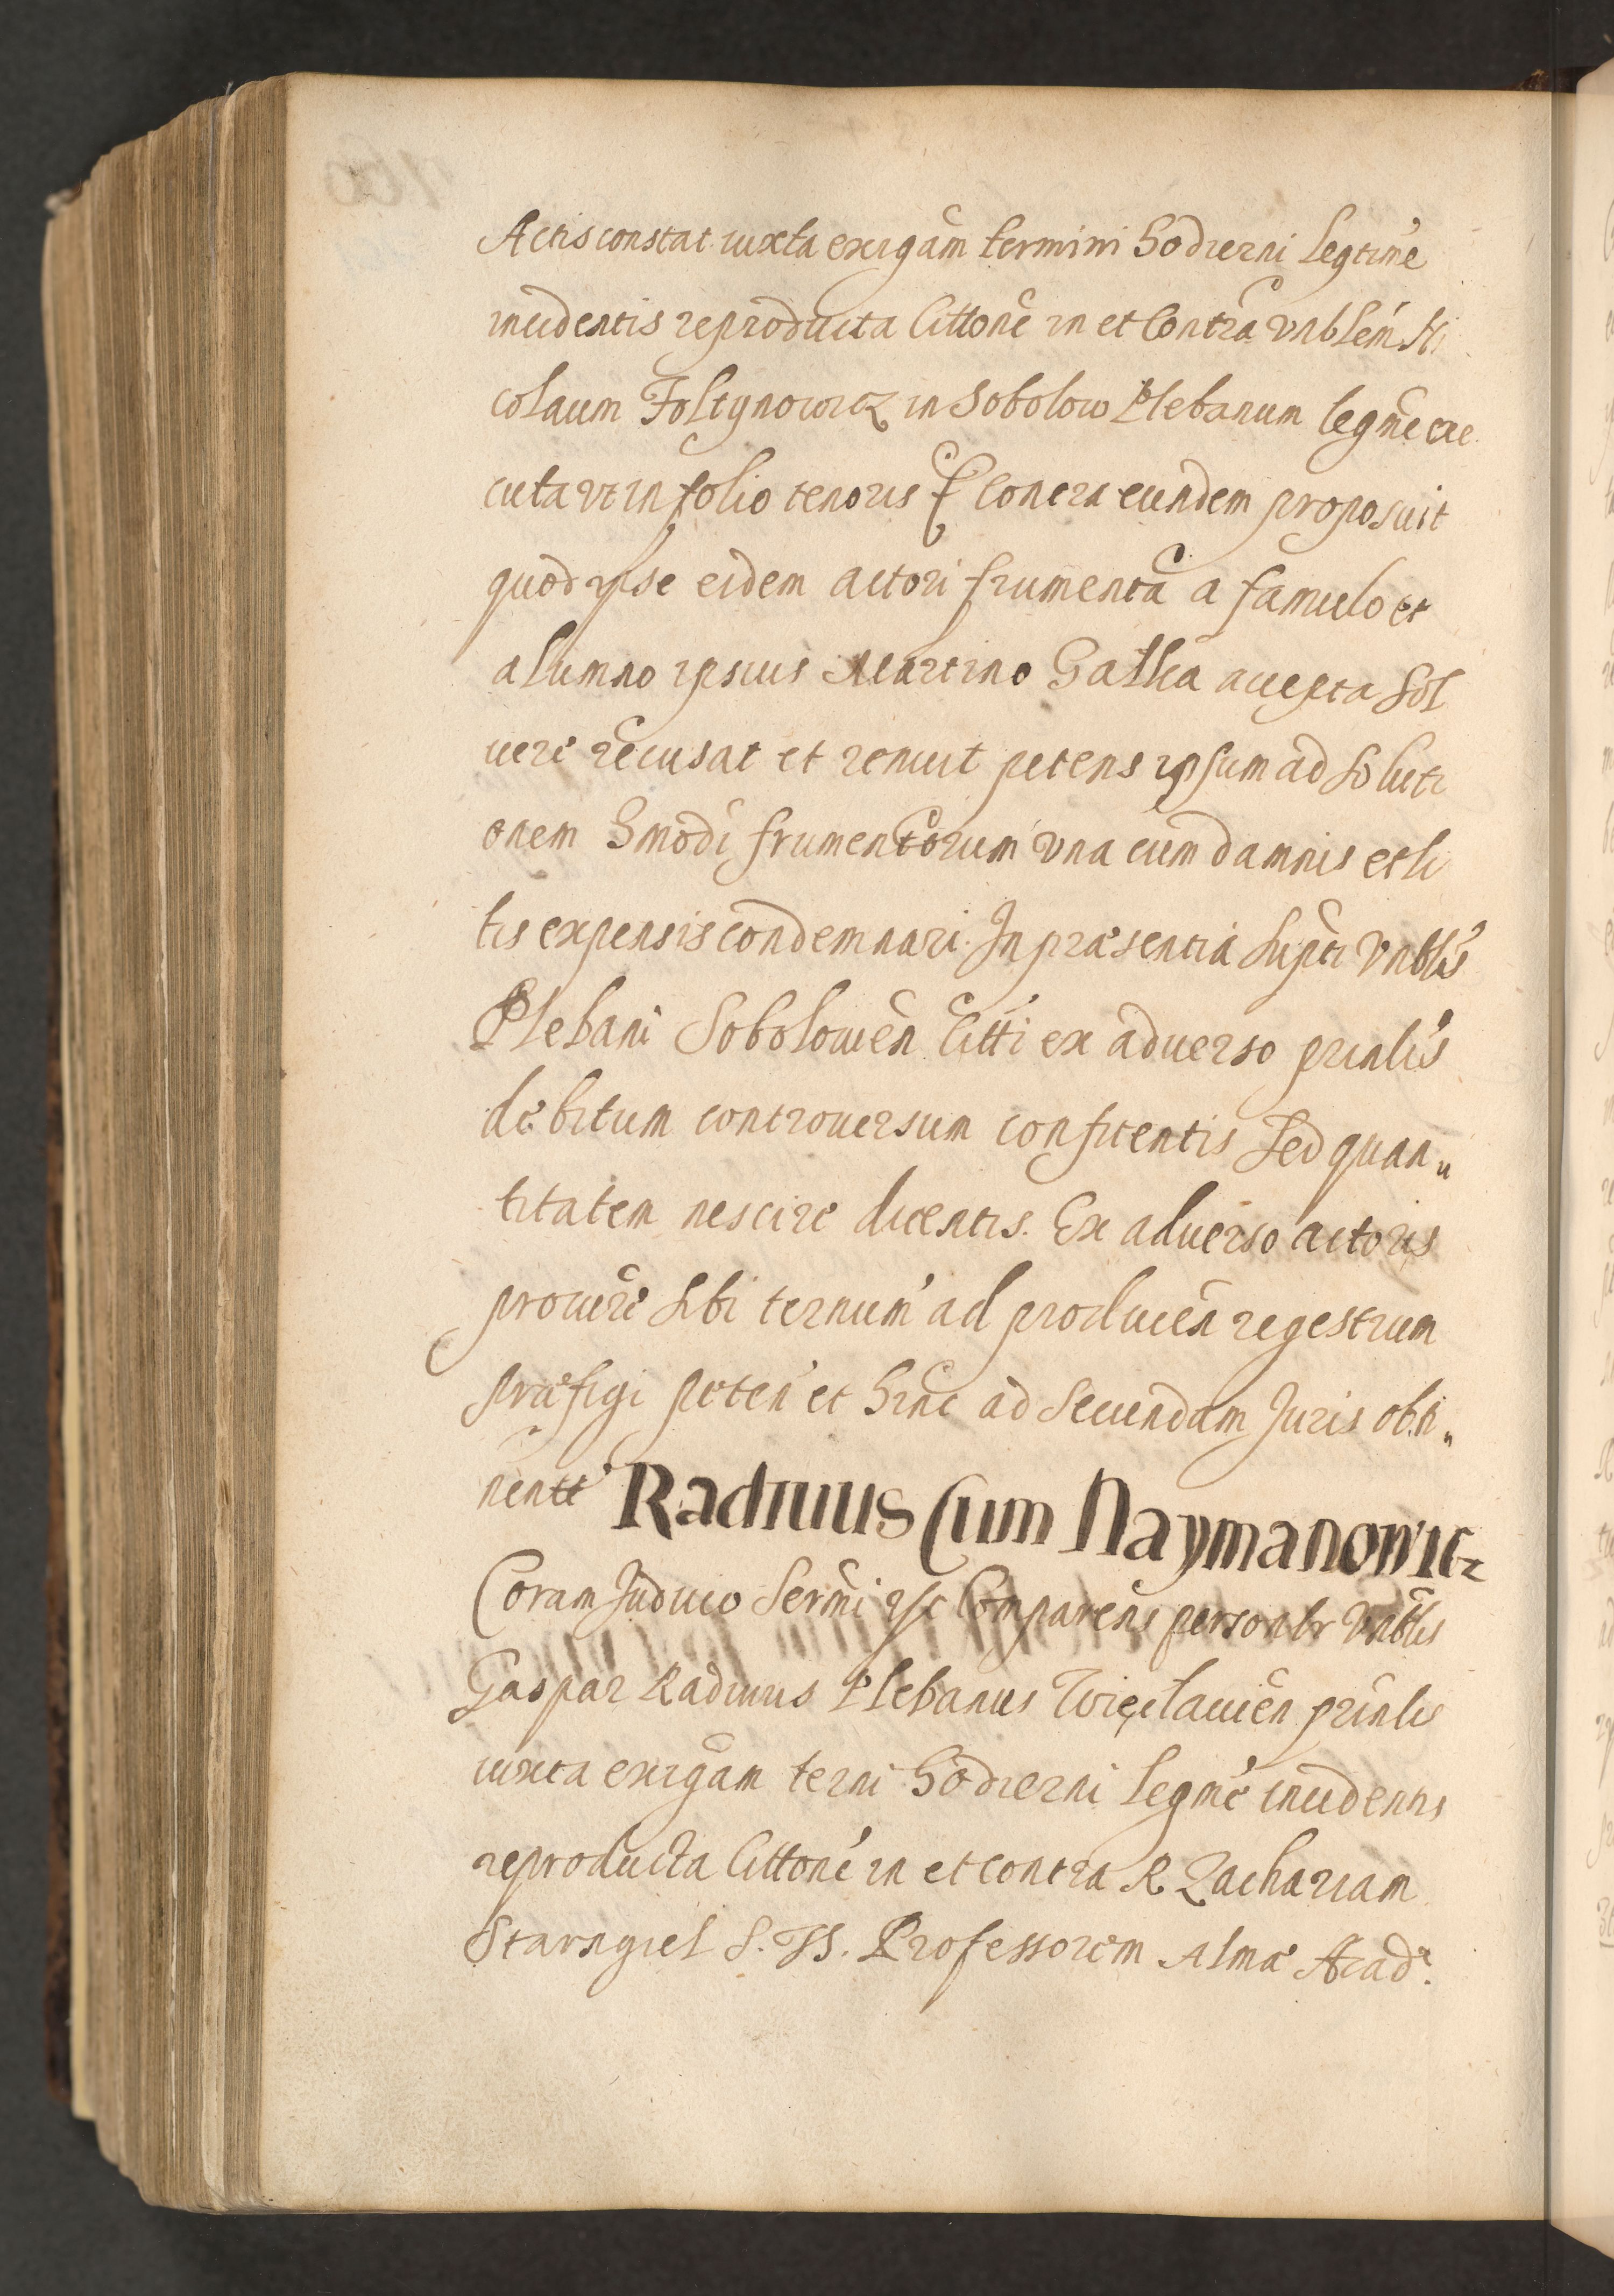 Actis constat iuxta exigãm termini hodierni legtime
incidentis reproducta Cittone in et Contra vnblem Ni
colaum Foltynowicz in Sobolow Plebanum legme exe
cuta vt in folio tenoris contra eundem proposuit
quod ipse eidem actori frumenta a famulo et
alumno ipsius Martino Galka accepta sol
uere recusat et renuit petens ipsum ad soluti
onem hmodi frumentorum vna cum damnis et li
tis expensis condemnari. In præsentia supti Vnblis
Plebani Sobolowien Citti ex aduerso prinlis
debitum controuersum confitentis sed quan„
titatem nescire dicentis. Ex aduerso actoris
procure sibi ternum ad producen regestrum
præfigi peten et hinc ad secundam Juris obti„
nentt Radiuius Cum Naymanowicz
Coram Judicio Sermi ipse Comparens personlr Vnblis
Gaspar Radiuius Plebanus Więclauien prinlis
iuxta exigãm terni hodierni legme incidentis
reproducta Cittone in et contra R Zachariam
Starngiel S. Th. Professorem Almæ Acad.